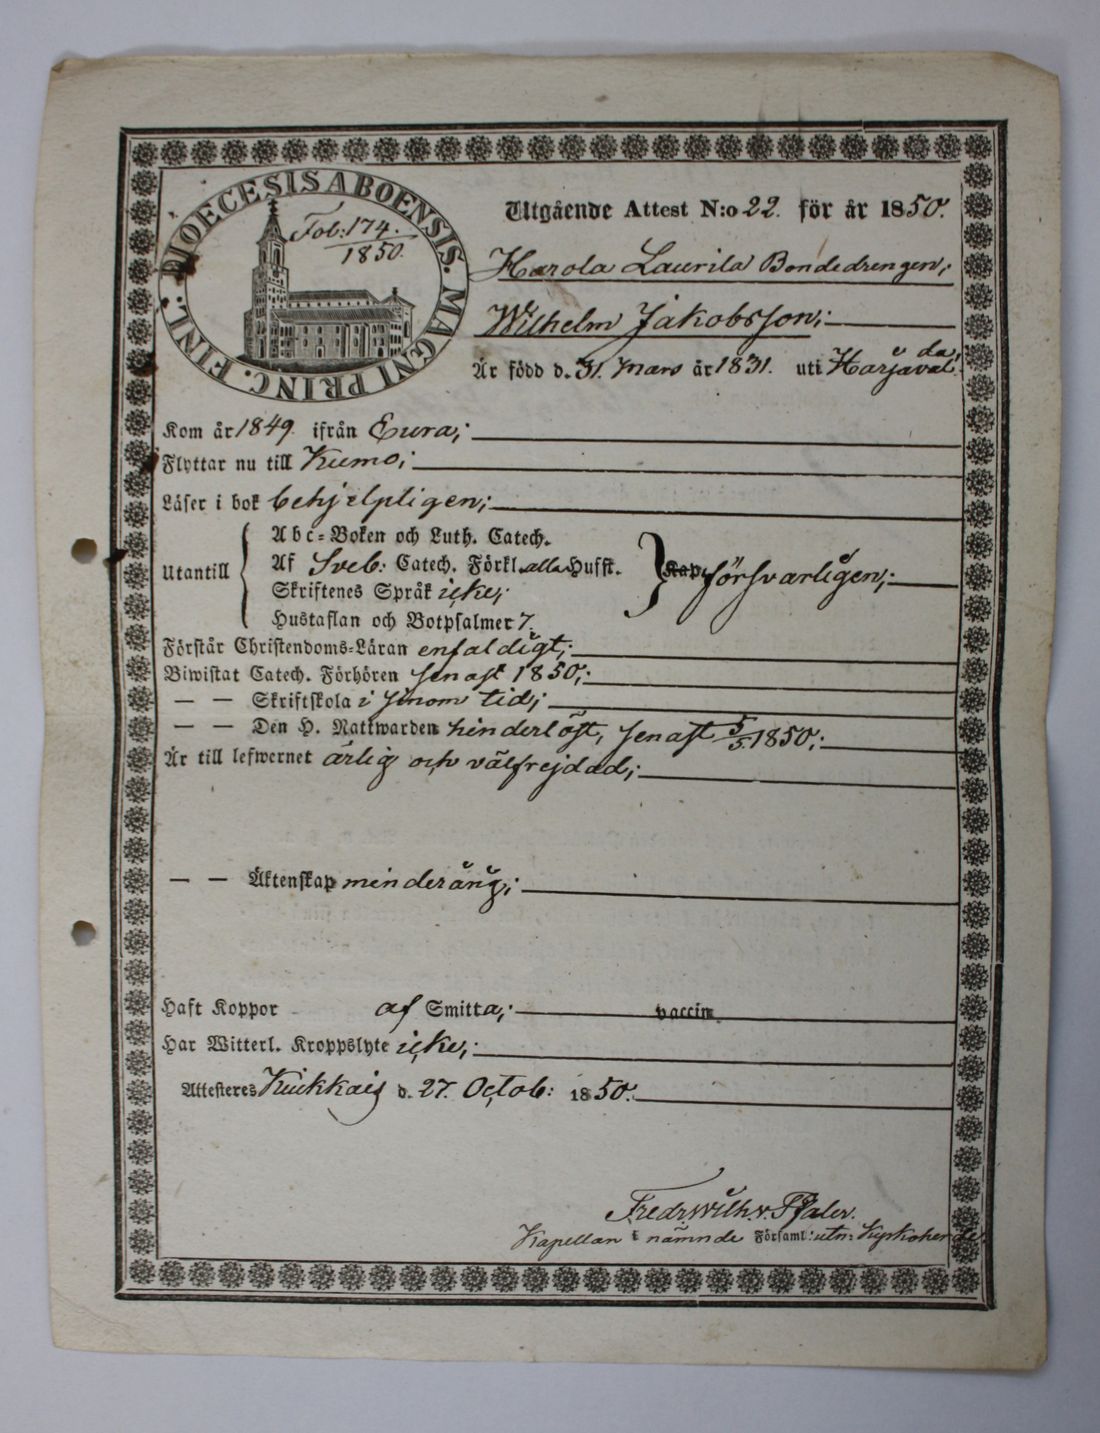 DIOECESIS ABOENSIS. MAGNI PRINC. FINL.
Fol: 174.
1850.
Utgående Attest N:o 22. för år 1850.
Harola Laurila Bondedrengen,
Wilhelm Jakobsson;
Är född d. 31. Mars år 1831. uti Harjavalda;
Kom år 1849. ifrån Eura;
Flyttar nu till Kumo;
Läser i bok behjelpligen;
Utantill
Abc-Boken och Luth. Catech.
Af Sveb: Catech. Förkl. alla Hufst.
Skriftenes Språk icke;
Hustaflan och Botpsalmer 7.
Kap. försvarligen;
Förstår Christendoms-Läran enfaldigt;
Biwistat Catech. Förhören senast 1850;
— — Skriftskola i sinom tid;
— — Den H. Nattwarden hinderlöst, senast 5/5 1850;
Är till lefwernet ärlig och välfrejdad;
— — Äktenskap minderårig;
Haft Koppor af Smitta; vaccin
Har Witterl. Kroppslyte icke;
Attesteres d. 27. Octob: 1850.
Fredr. Wilh. v. Pfaler.
Kapellan i nämnde Församl: